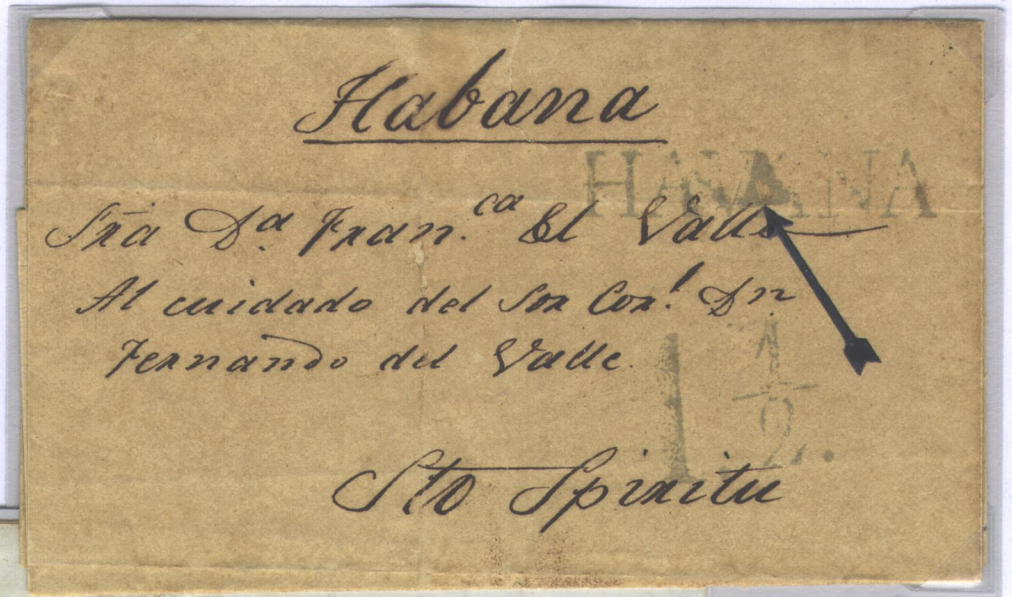 Habana
HAVANA
Sra Da. Franca. El Valle
Al cuidado del Sor Cor.l Dn
Fernando del Valle.
1 1/2.
Sto Spiritu